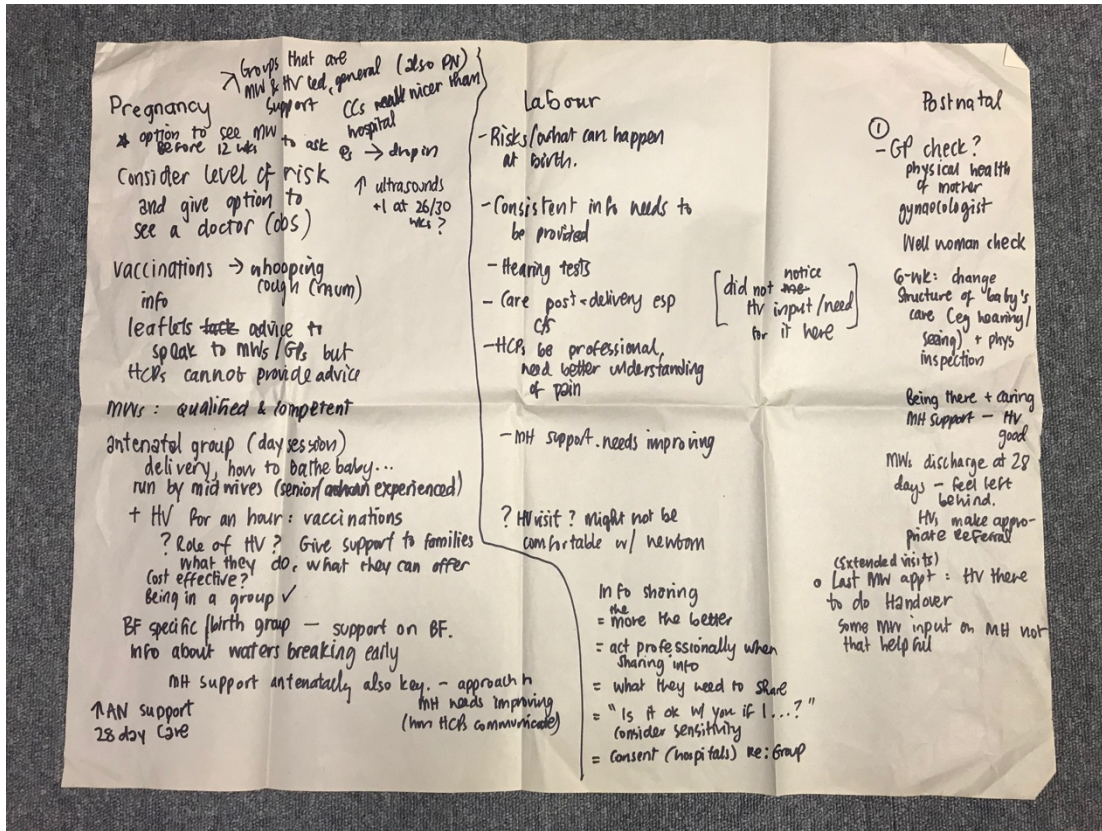 Pregnancy
↗ Groups that are
MW & HV led, general (also PN)
support
CCs much nicer than
hospital
* option to see MW
before 12 wks to ask Qs → drop in
Consider level of risk
and give option to
see a doctor (obs)
↑ ultrasounds
+1 at 26/30
wks?
vaccinations → whooping
cough (mum)
info
leaflets advice to
speak to MWs/GPs but
HCPs cannot provide advice
MWs: qualified & competent
antenatal group (day session)
delivery, how to bathe baby...
run by midwives (senior/ experienced)
+ HV for an hour: vaccinations
? Role of HV? Give support to families
what they do, what they can offer
Cost effective?
Being in a group ✓
BF specific/birth group — support on BF.
Info about waters breaking early
MH support antenatally also key. — approach
MH needs improving
(how HCPs communicate)
↑ AN support
28 day care
Labour
- Risks/what can happen
at birth.
- Consistent info needs to
be provided
- Hearing tests
- Care post-delivery esp
C/S
- HCPs be professional,
need better understanding
of pain
[did not notice
HV input/need
for it here]
- MH support. needs improving
? HV visit? might not be
comfortable w/ newborn
Info sharing
= the more the better
= act professionally when
sharing info
= what they need to share
= "Is it ok w/ you if I...?"
consider sensitivity
= Consent (hospitals) Re: Group
Postnatal
①
- GP check?
physical health
of mother
gynaecologist
Well woman check
6-wk: change
structure of "baby's
care (eg hearing/
seeing) + phys
inspection
Being there + caring
MH support — HV
good
MWs discharge at 28
days — feel left
behind.
HVs make appro-
priate referral
(Extended visits)
• Last MW appt: HV there
to do Handover
some MW input on MH not
that helpful